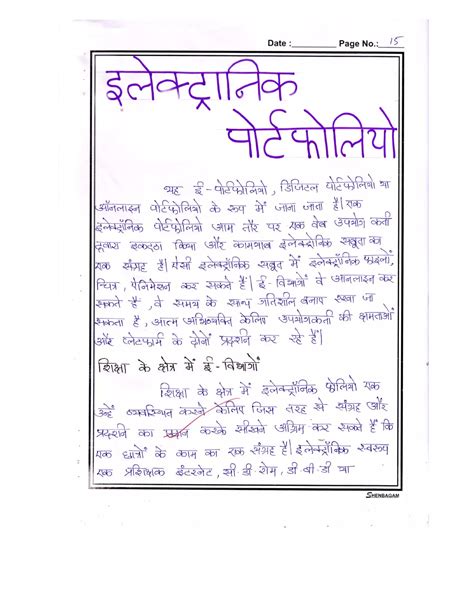 Date :________ Page No.: 15
इलेक्ट्रानिक
पोर्टफोलियो
यह ई-पोर्टफोलियो, डिजिटल पोर्टफोलियो या
ऑनलाइन पोर्टफोलियो के रूप में जाना जाता है। एक
इलेक्ट्रॉनिक पोर्टफोलियो आम तौर पर एक वेब उपयोग कर्ता
द्वारा इकट्ठा किया और कामयाब इलेक्ट्रोनिक सबूत का
एक संग्रह है। ऐसी इलेक्ट्रॉनिक सबूत में इलेक्ट्रोनिक फाइलों,
चित्र, कर सकते हैं। ई- वे ऑनलाइन कर
सकते हैं, वे समय के साथ गतिशील बनाए रखा जा
सकता है, आत्म अभिव्यक्ति केलिए उपयोगकर्ता की क्षमताओं
और प्लेटफार्म के दोनों प्रदर्शन कर रहे हैं।
शिक्षा के क्षेत्र में ई-
शिक्षा के क्षेत्र में इलेक्ट्रॉनिक फोलियो एक
उन्हें व्यवस्थित करने केलिए जिस तरह से संग्रह और
प्रदर्शन का प्रदान करके सीखने अग्रिम कर सकते हैं कि
एक छात्रों के काम का एक संग्रह है। इलेक्ट्रॉनिक स्वरूप
एक प्रशिक्षक इंटरनेट, सी.डी रोम, डी बी डी या
SHENBAGAM